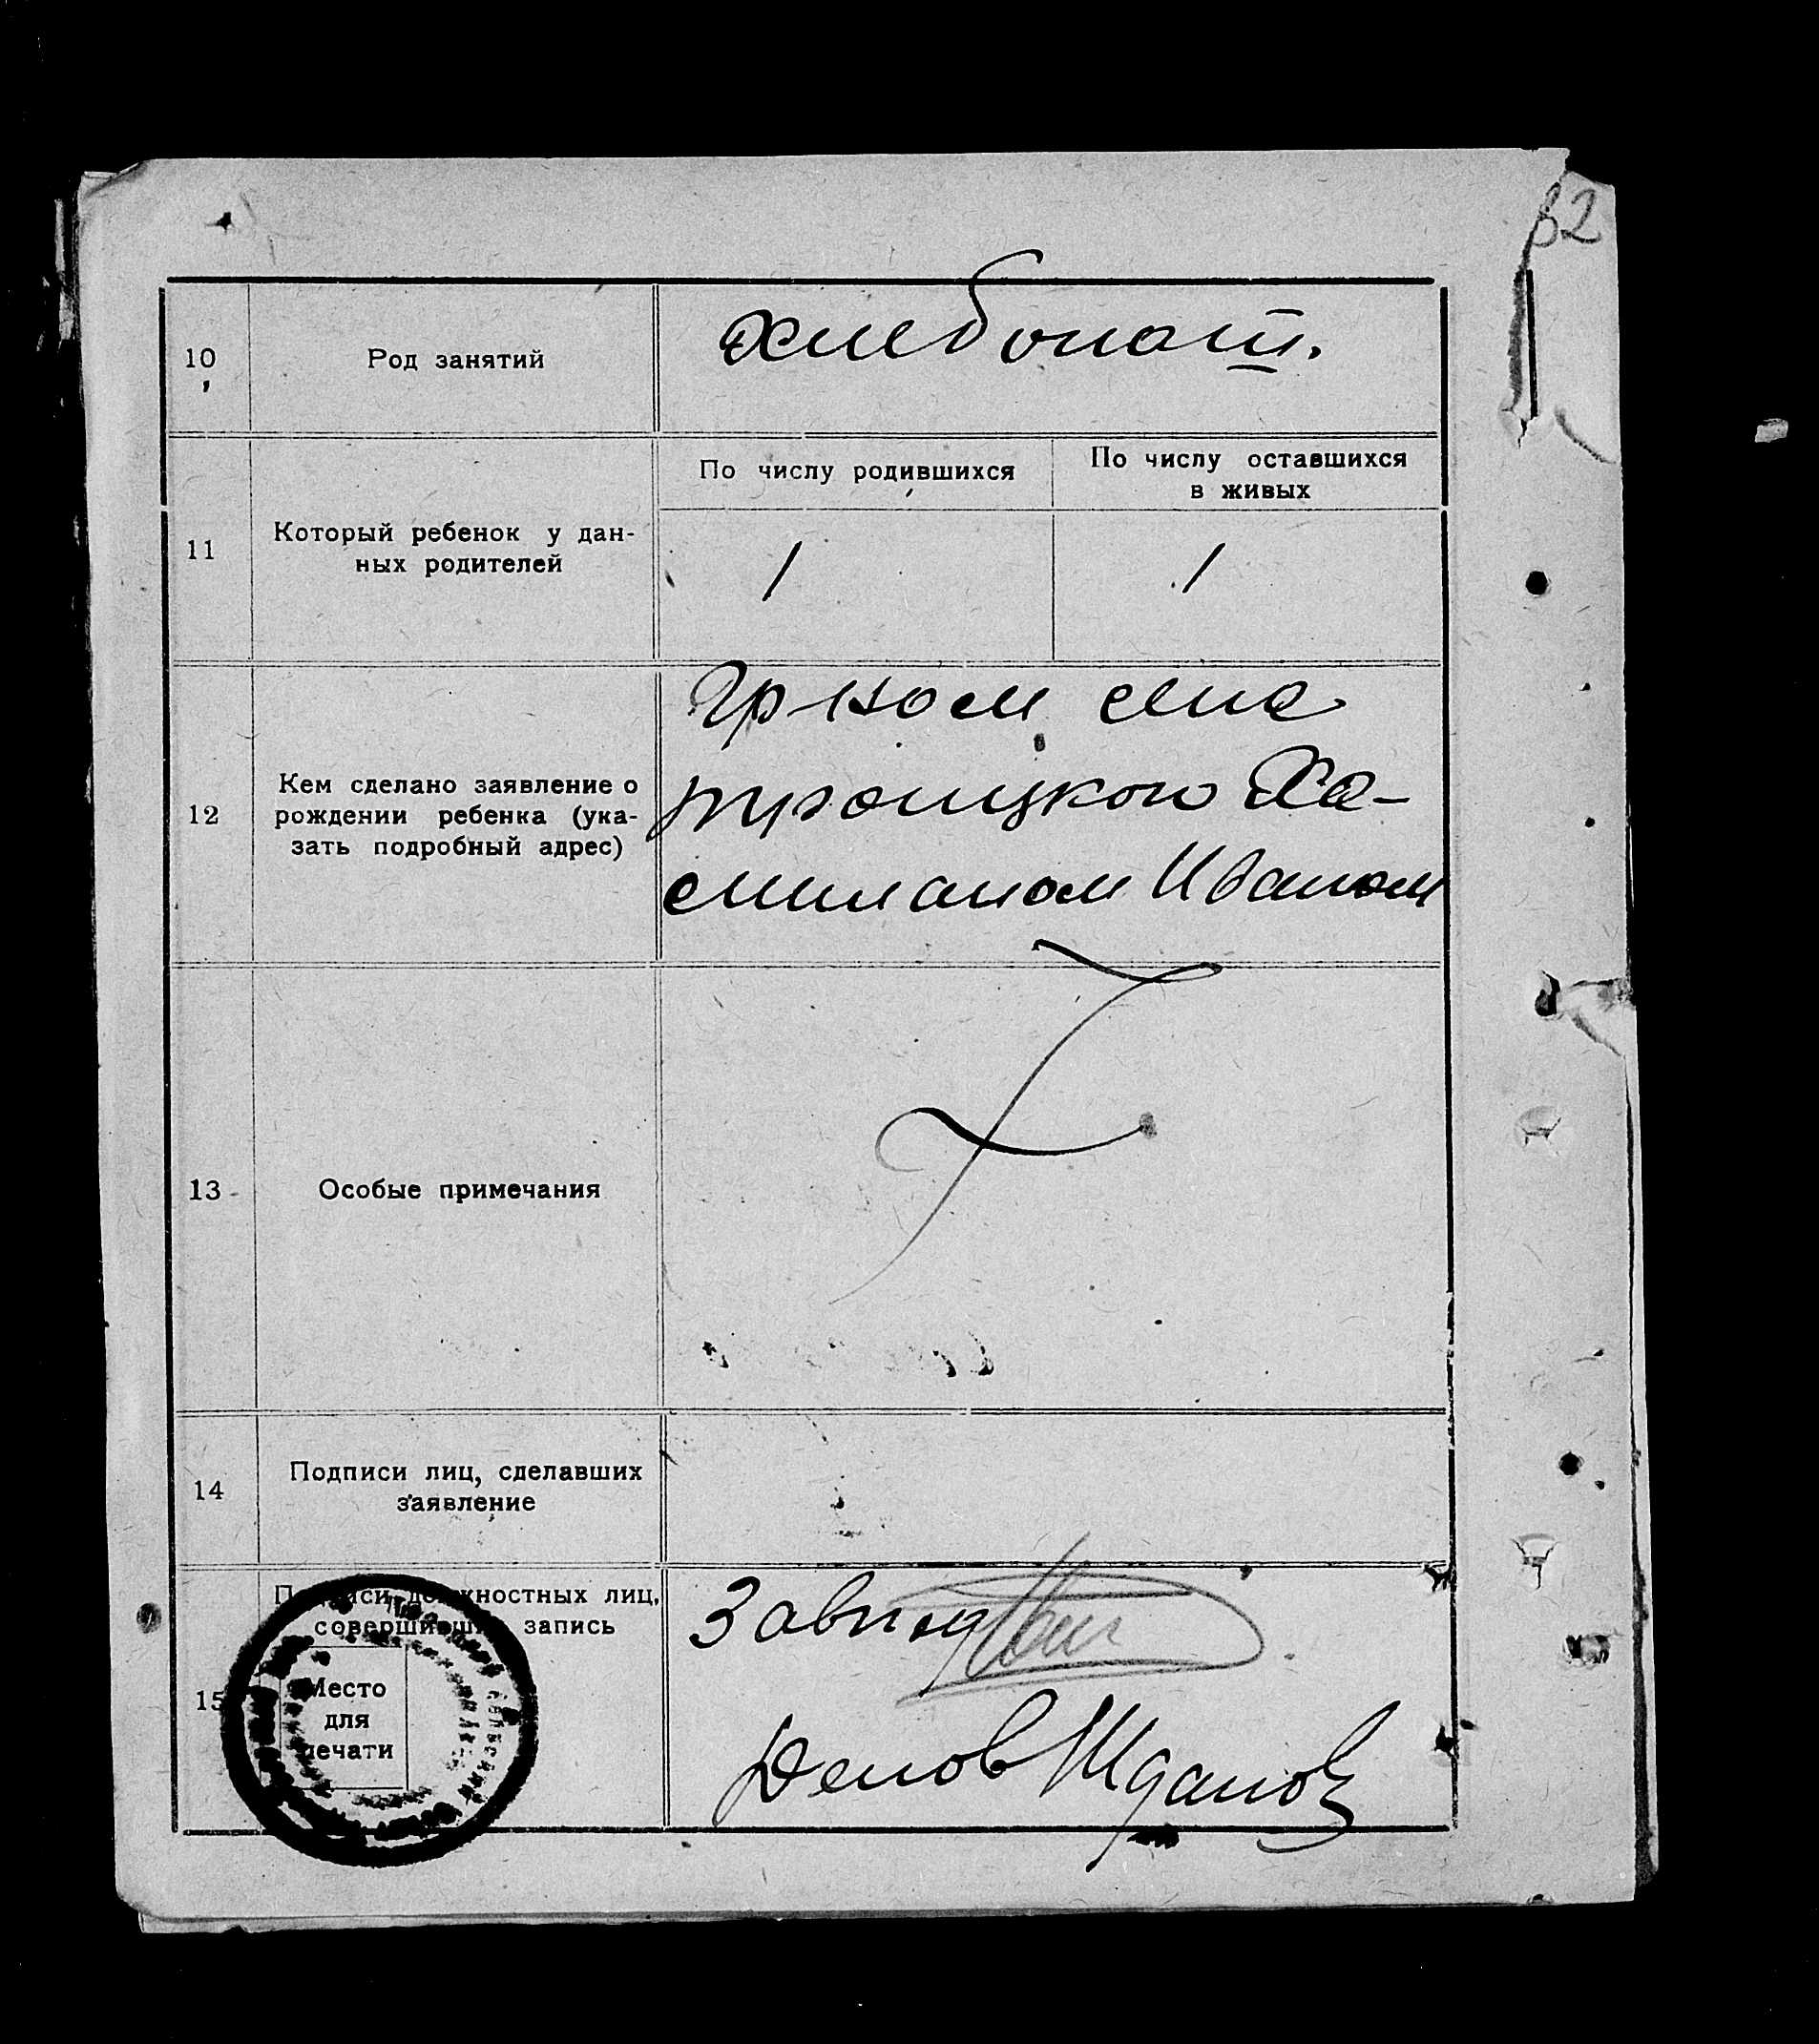 82
10
Род занятий
хлебопаш.
11
Который ребенок у дан-
ных родителей
По числу родившихся
По числу оставшихся
в живых
1
1
12
Кем сделано заявление о
рождении ребенка (ука-
зать подробный адрес)
Гр-ном села
Троицкого Ха-
Иваном
13
Особые примечания
14
Подписи лиц, сделавших
заявление
15
Подписи должностных лиц,
совершивших запись
Место
для
печати
Завпод
Делов Жданов